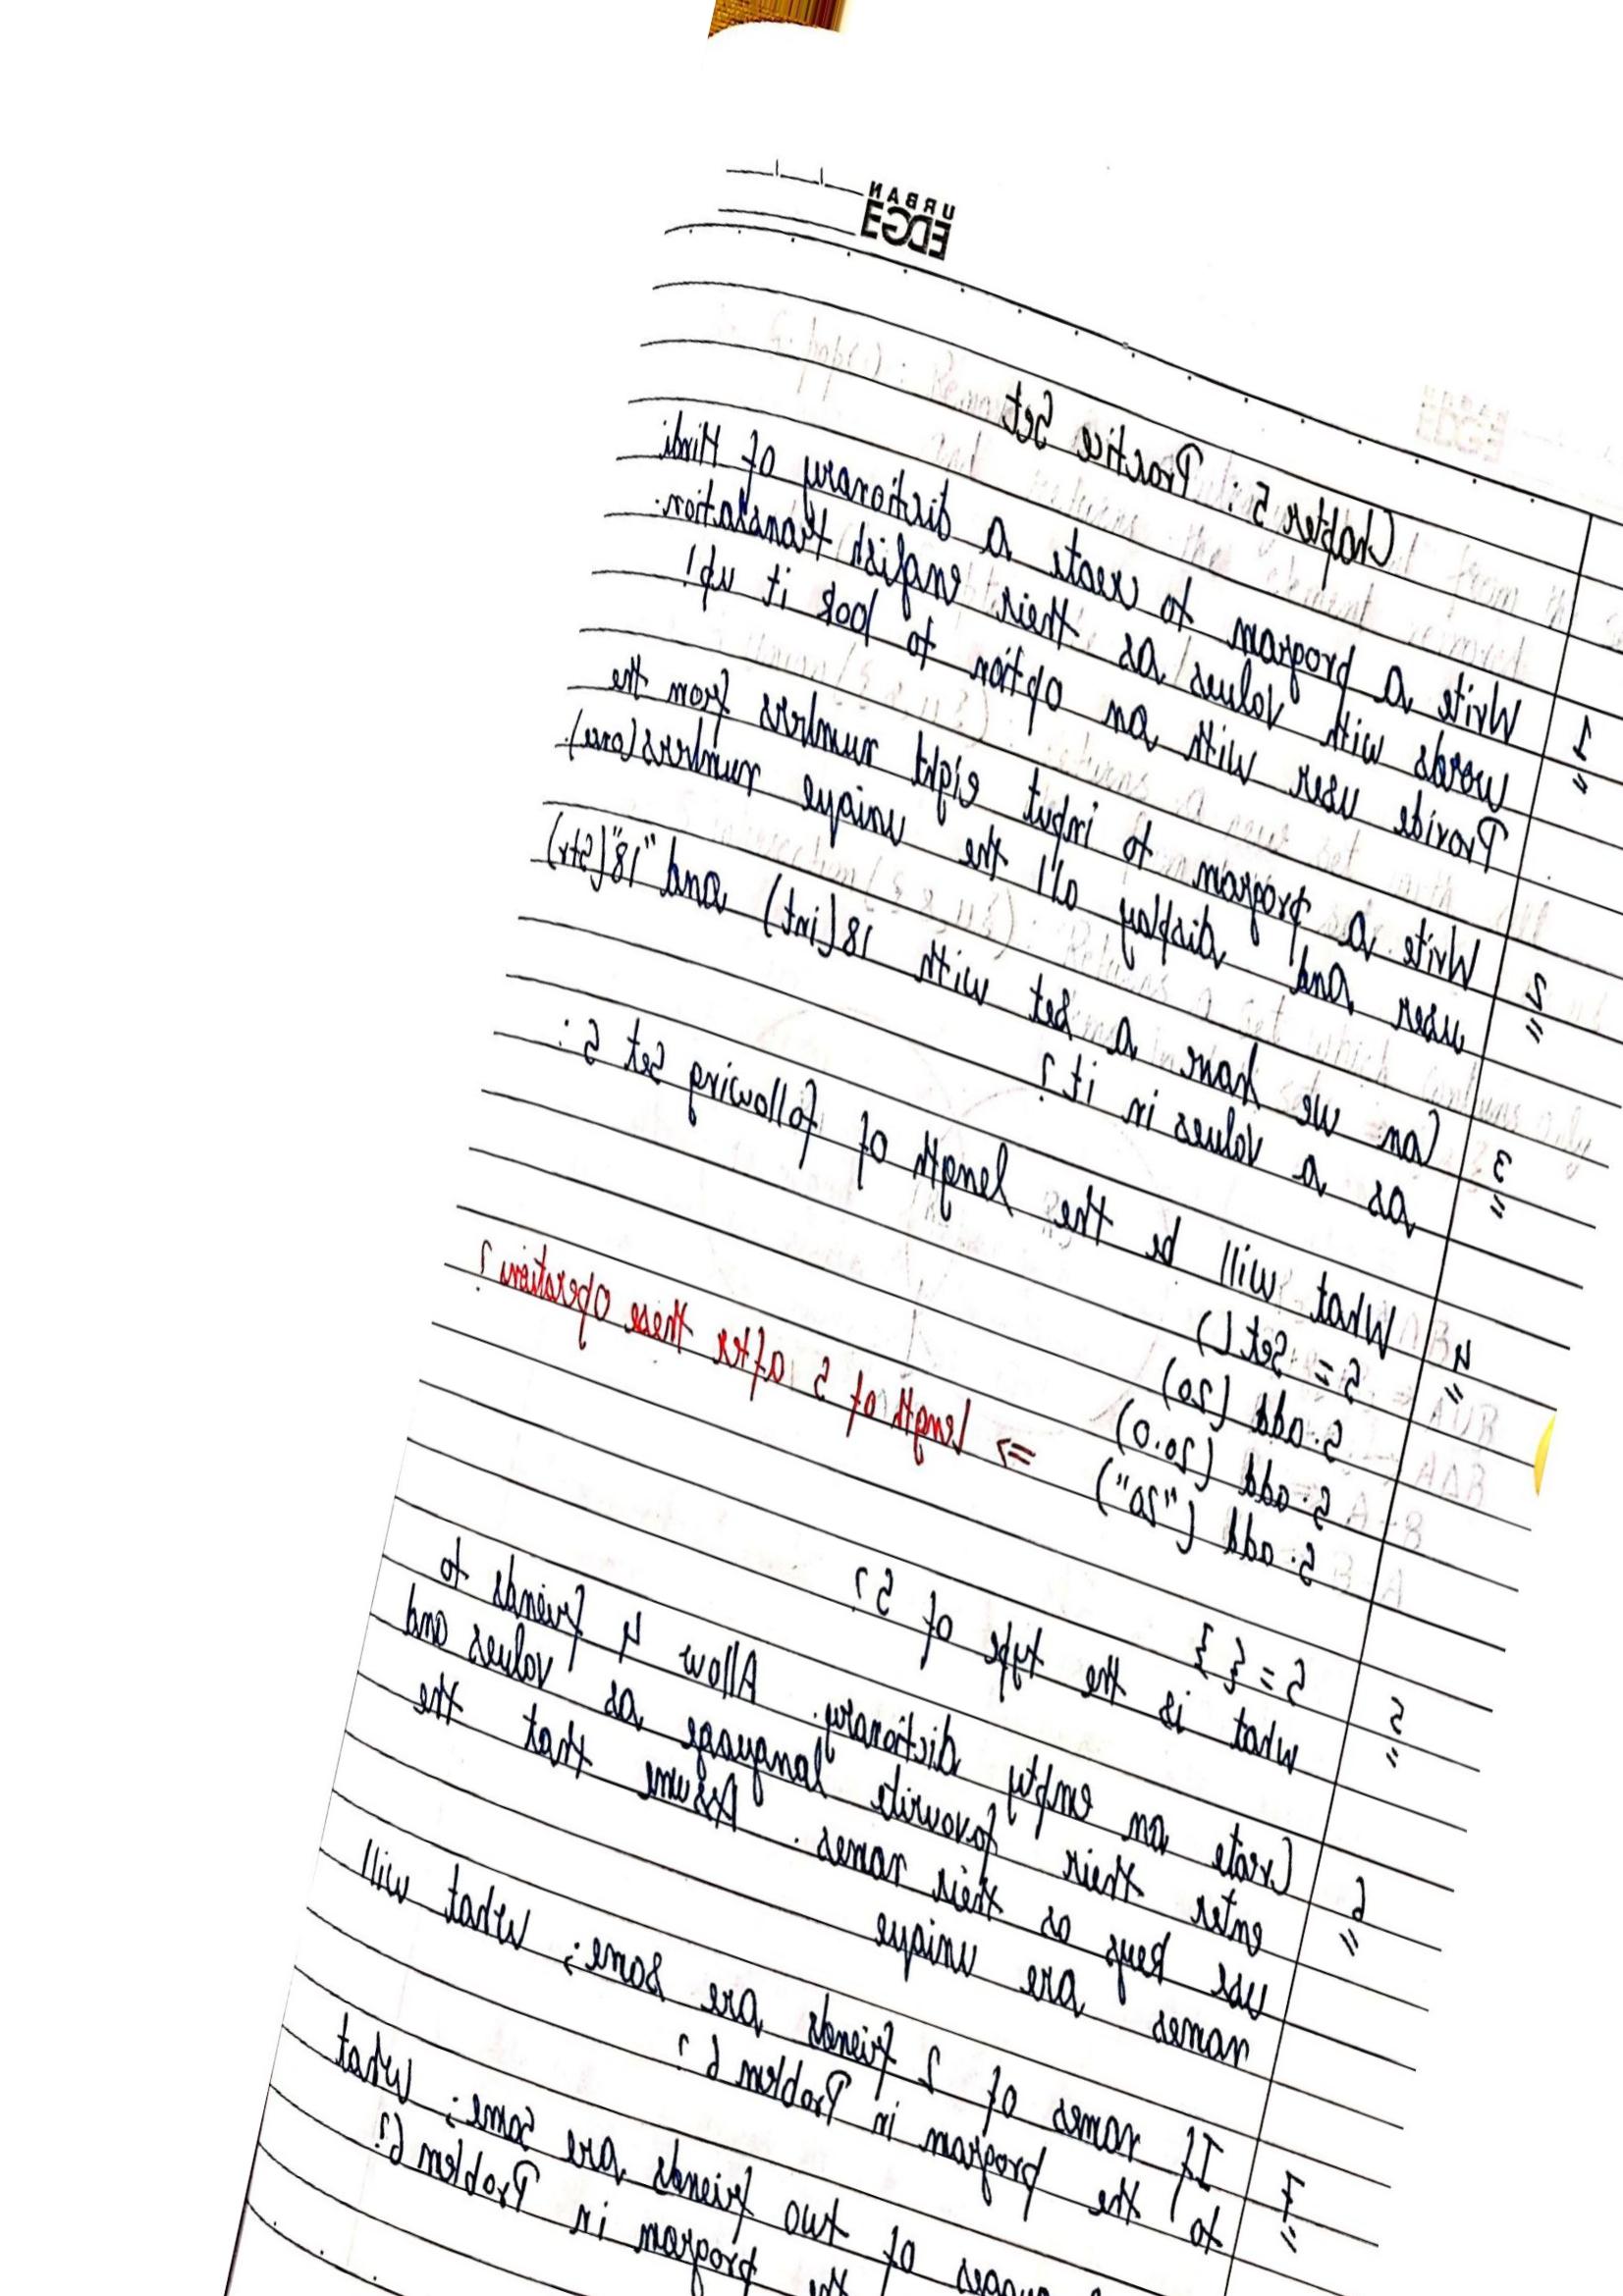 URBAN
EDGE
Chapter 5 : Practice Set
1 Write a program to create a dictionary of Hindi
words with values as their english translation.
Provide user with an option to look it up!
2 Write a program to input eight numbers from the
user and display all the unique numbers (once).
3 Can we have a set with 18 (int) and "18" (str)
as a values in it?
4 What will be the length of following set S :
S = Set ( )
S. add (20)
S. add (20.0)
S. add ("20") => length of S after these operations?
5 S = { }
what is the type of S?
6 Create an empty dictionary. Allow 4 friends to
enter their favourite language as values and
use keys as their names. Assume that the
names are unique
7 If names of 2 friends are same; what will
to the program in Problem 6?
of two friends are same; what
the program in Problem 6?